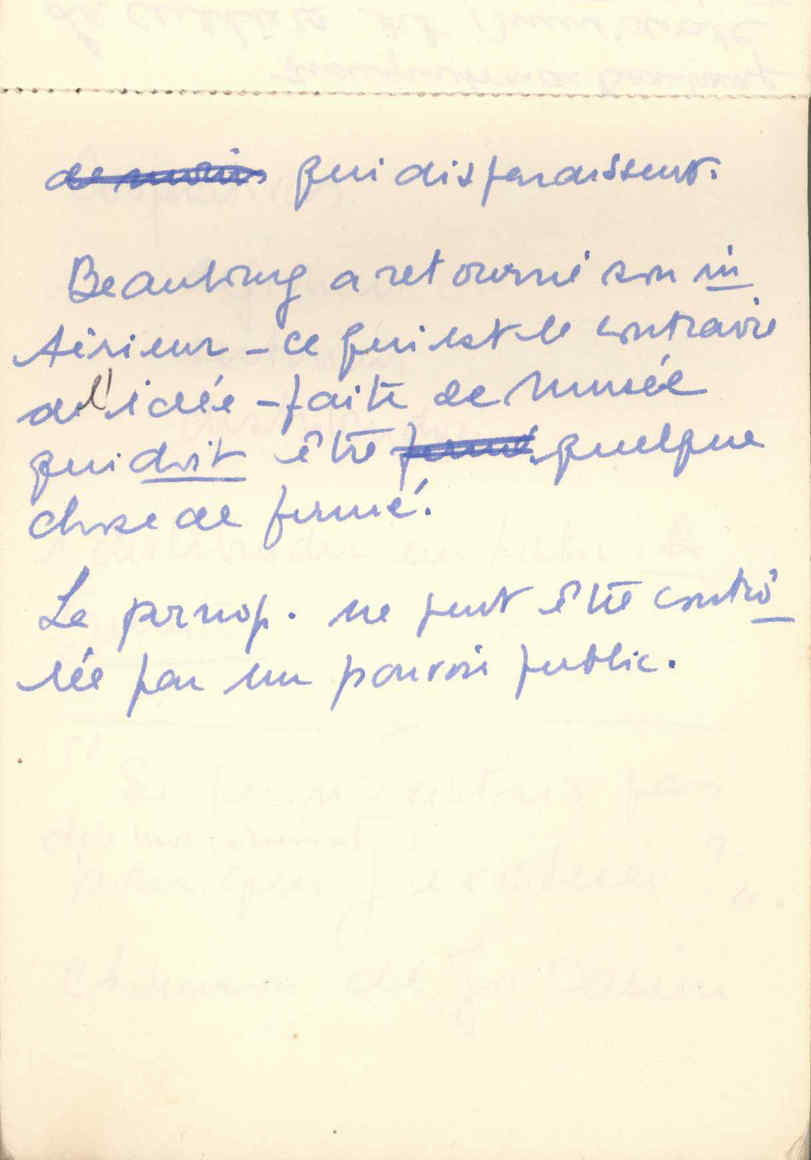 de moins qui disparaissent.
Beaubourg a retourné son in
térieur – ce qui est le contraire
de l'idée – faite de musée
qui doit être fermé quelque
chose de fermé.
Le pornop. ne peut être contrô
lée par un pouvoir public.